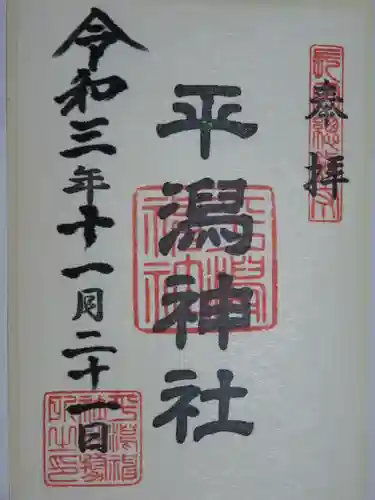 奉拝
平潟神社
令和三年十一月二十一日